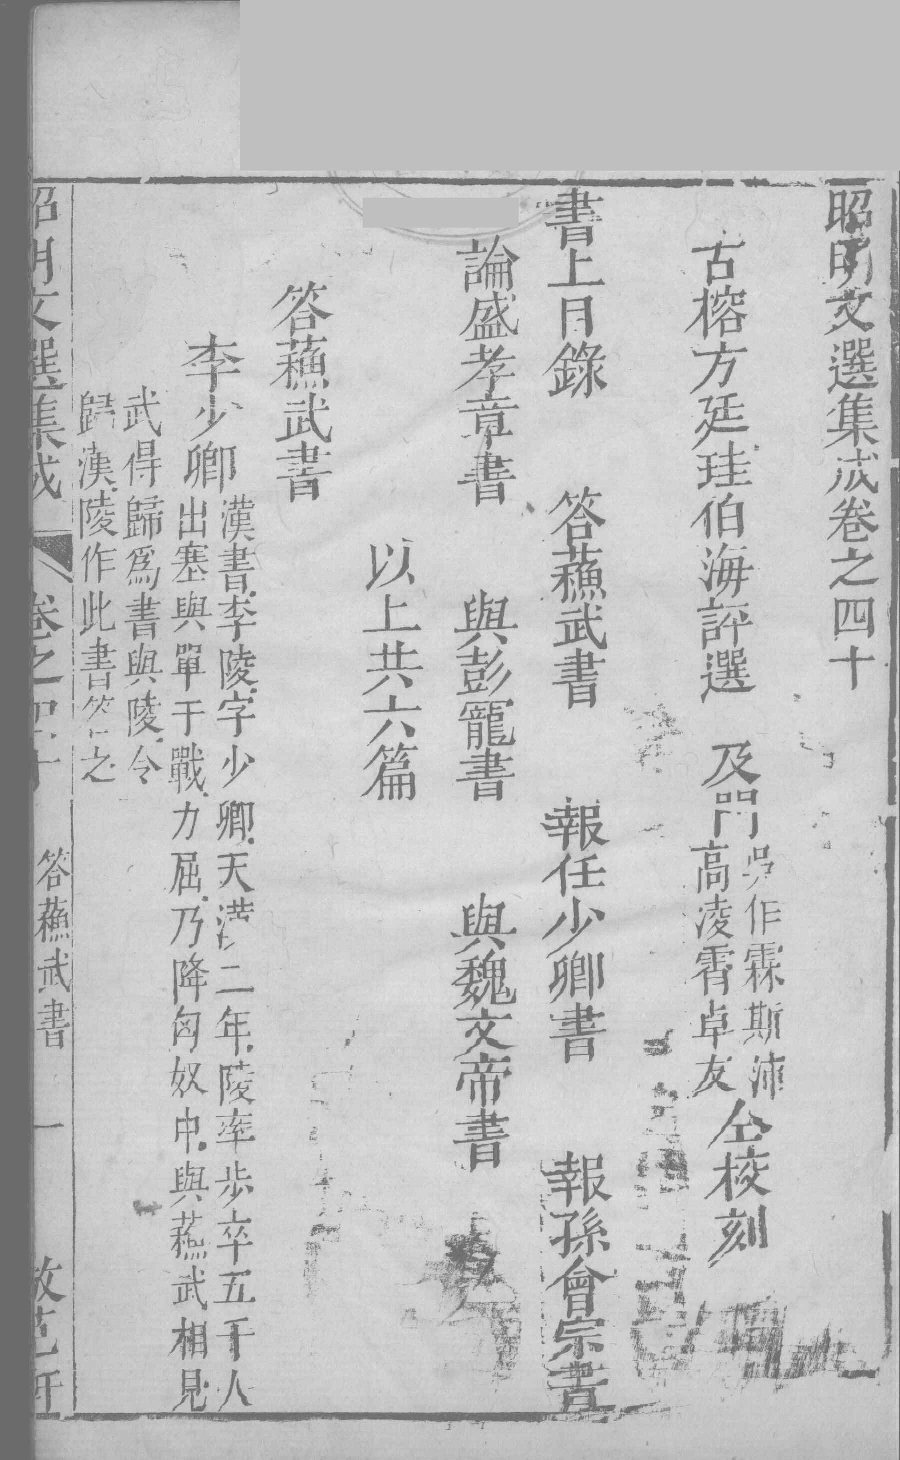 昭明文選集成卷之四十
古榕方廷珪伯海評選　及門
吳作霖斯沛
高凌霄卓友
仝校刻
書上目錄　答蘓武書　報任少卿書　報孫會宗書
論盛孝章書　與彭寵書　與魏文帝書
以上共六篇
答蘓武書
李少卿
漢書李陵字少卿天漢二年陵率步卒五千人
出塞與單于戰力屈乃降匈奴中與蘓武相見
武得歸爲書與陵令
歸漢陵作此書答之
昭明文選集成　卷之四十　答蘓武書　一